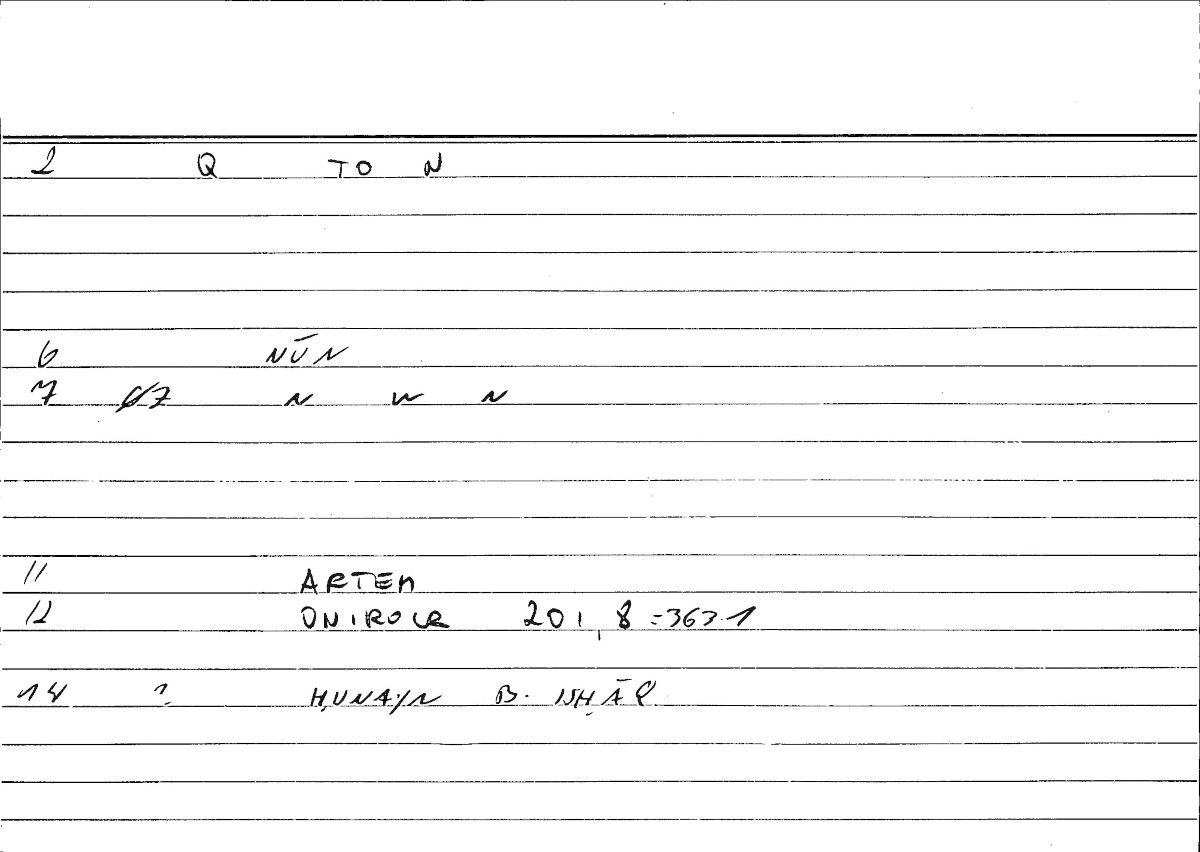 2 Q TO N
6 NŪN
7 67 N W N
11 ARTEM
12 ONIROCR 201,8 =363.1
14 ? ḤUNAYN B. ISḤĀQ